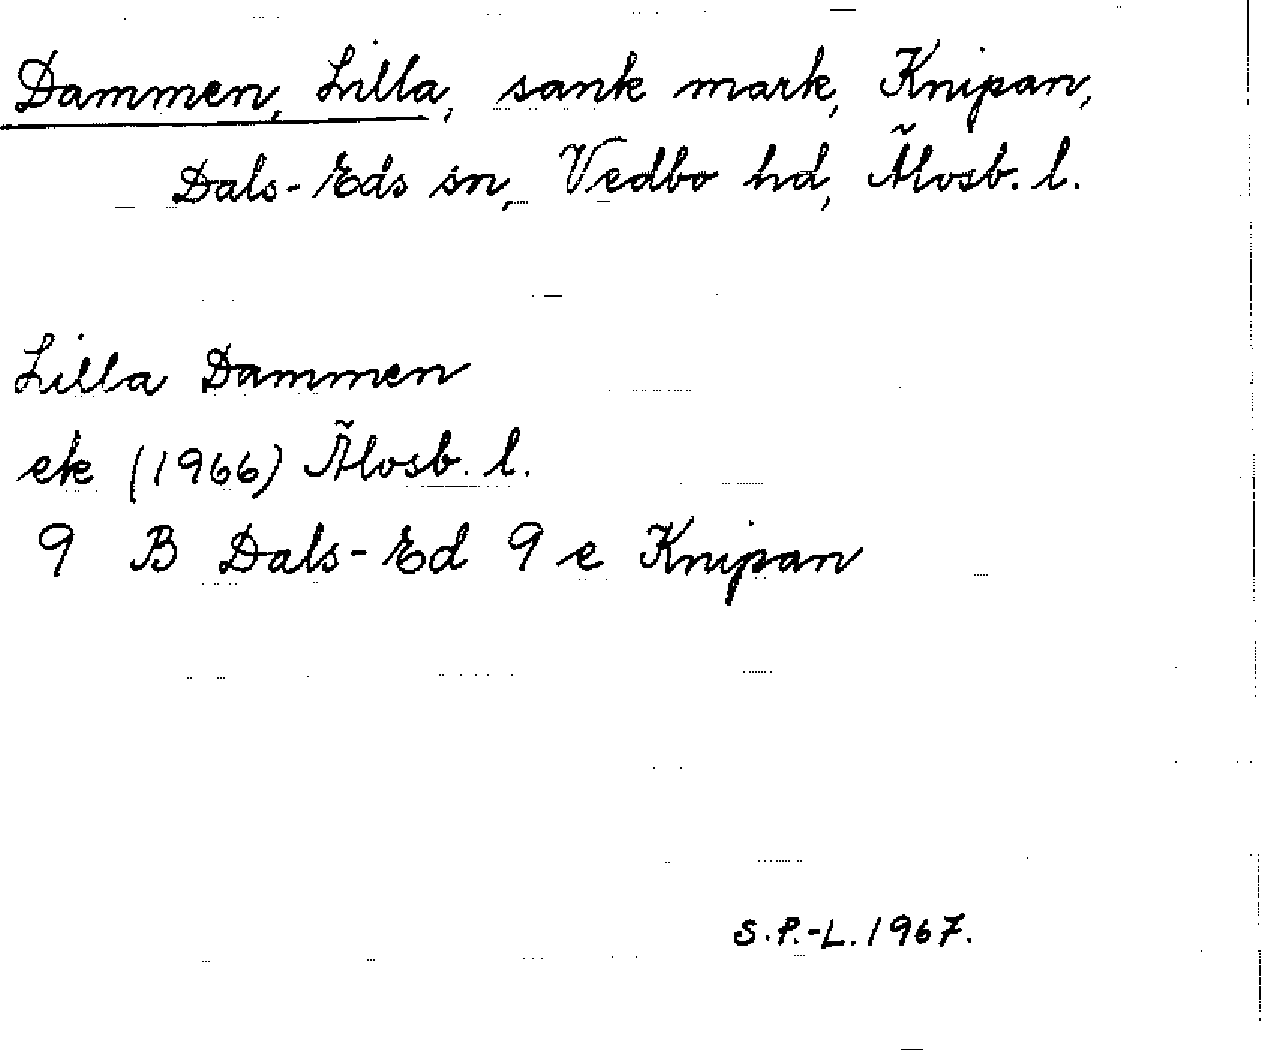 Dammen, Lilla, sank mark, Knipan,
Dals-Eds sn, Vedbo hd, Älvsb. l.
Lilla Dammen
ek (1966) Älvsb. l.
9 B Dals-Ed 9 e Knipan
S.P.-L. 1967.